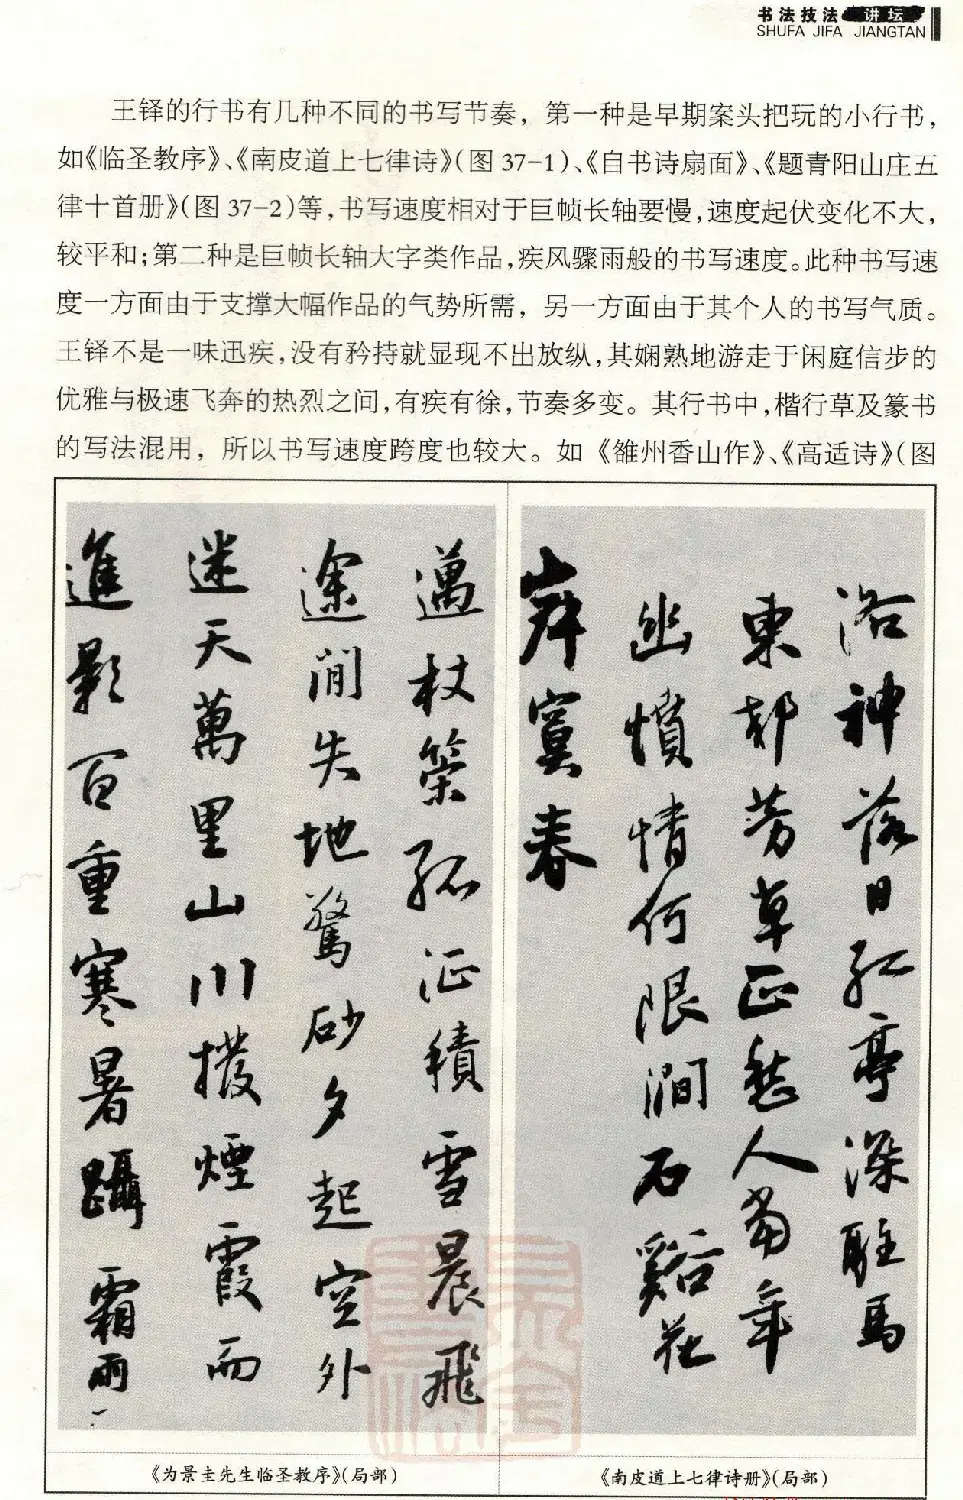 书法技法 讲坛
SHUFA JIFA JIANGTAN
王铎的行书有几种不同的书写节奏，第一种是早期案头把玩的小行书，
如《临圣教序》、《南皮道上七律诗》（图 37-1）、《自书诗扇面》、《题青阳山庄五
律十首册》（图 37-2）等，书写速度相对于巨帧长轴要慢，速度起伏变化不大，
较平和；第二种是巨帧长轴大字类作品，疾风骤雨般的书写速度。此种书写速
度一方面由于支撑大幅作品的气势所需，另一方面由于其个人的书写气质。
王铎不是一味迅疾，没有矜持就显现不出放纵，其娴熟地游走于闲庭信步的
优雅与极速飞奔的热烈之间，有疾有徐，节奏多变。其行书中，楷行草及篆书
的写法混用，所以书写速度跨度也较大。如《雒州香山作》、《高适诗》（图
洛神落日红亭深驻马
東邨芳草正愁人当年
幽憤情何限澗石谿花
弄寞春
邁杖策孤征積雪晨飛
途間失地驚砂夕起空外
迷天萬里山川撥煙霞而
進影百重寒暑躡霜雨
《为景圭先生临圣教序》（局部）
《南皮道上七律诗册》（局部）